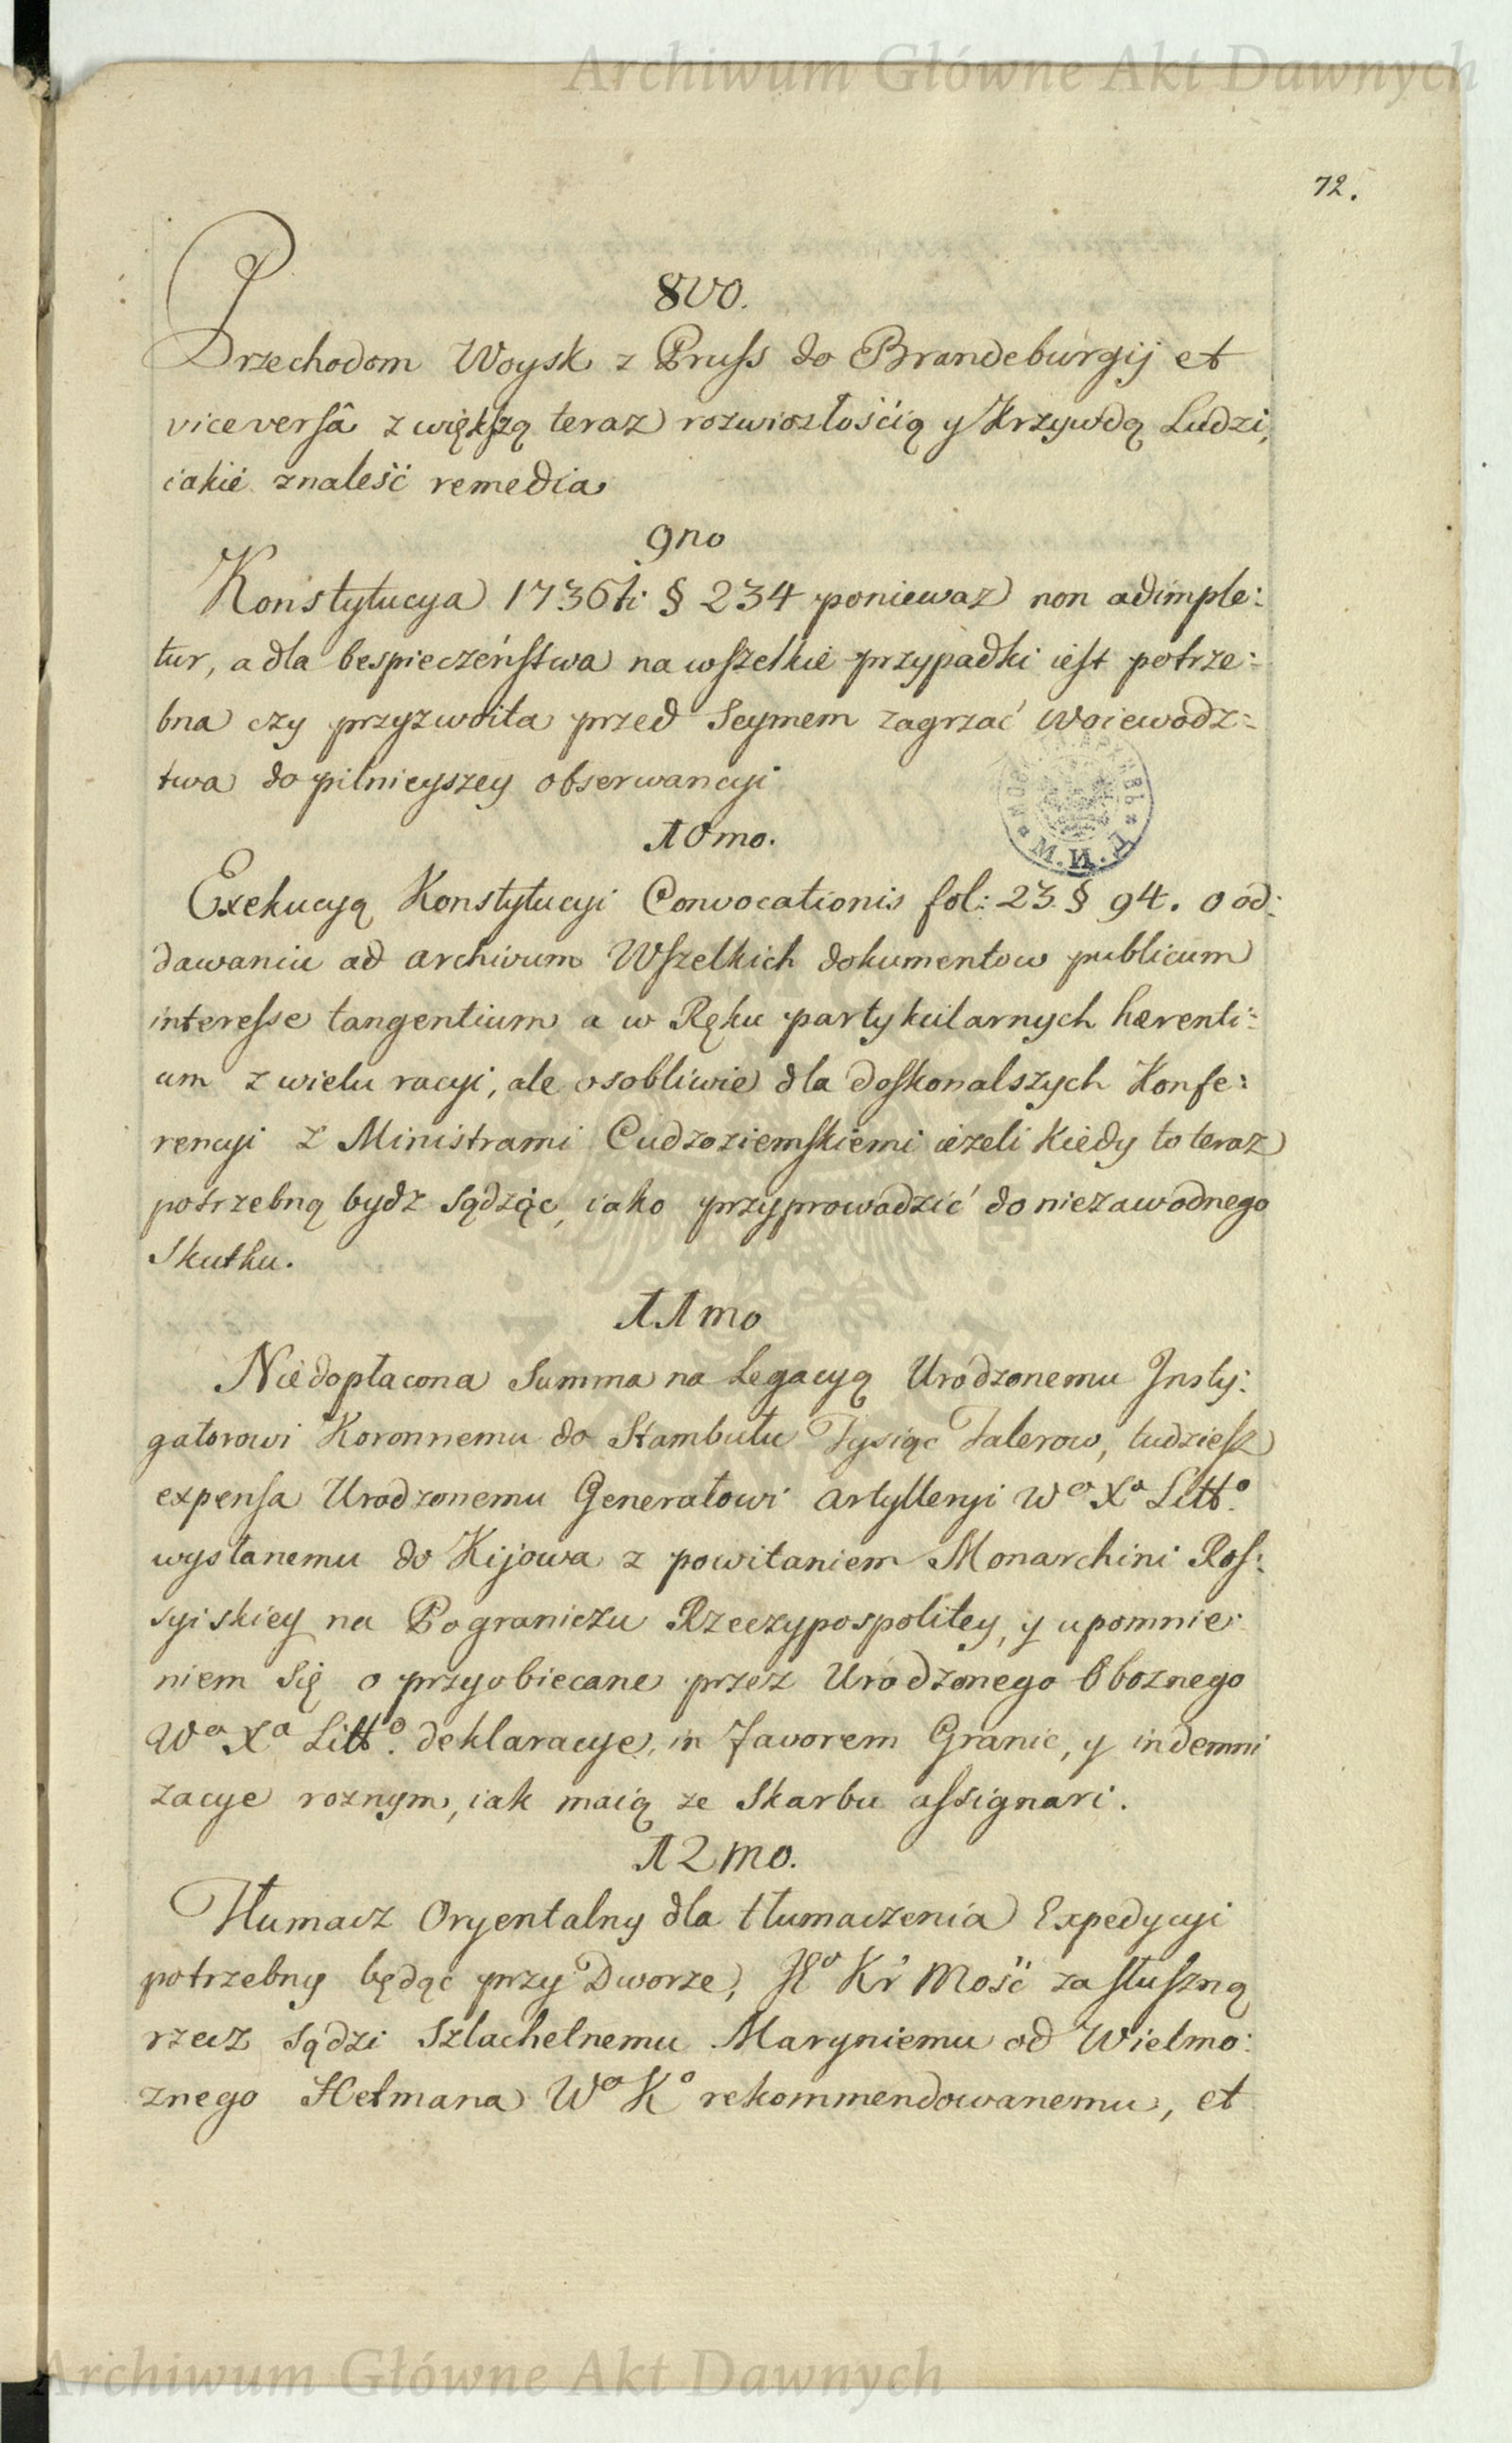 Archiwum Główne Akt Dawnych
72.
8vo.
Przechodom Woysk z Pruss do Brandeburgij et
viceversâ z większą teraz rozwiozłością y Krzywdą Ludzi,
iakie znaleść remedia
9no
Konstytucya 1736ti § 234 poniewaz non adimple:
tur, a dla bespieczeństwa na wszelkie przypadki iest potrze:
bna czy przyzwoita przed Seymem zagrzać Woiewodz:
twa do pilnieyszey obserwancyi
10mo.
Exekucyą Konstytucyi Convocationis fol: 23 § 94. o od:
dawaniu ad archivum Wszelkich dokumentow publicum
interesse tangentium a w Ręku partykularnych hærenti:
um z wielu racyi, ale osobliwie dla doskonalszych Konfe:
rencyi z Ministrami Cudzoziemskiemi ieżeli kiedy to teraz
potrzebną bydz sądząc, iako przyprowadzić do niezawodnego
Skutku.
11mo
Niedopłacona Summa na Legacyą Urodzonemu Insty:
gatorowi Koronnemu do Stambułu Tysiąc Talerow, tudziesz
expensa Urodzonemu Generałowi Artylleryi Wo Xa Litto.
wysłanemu do Kijowa z powitaniem Monarchini Ros:
syiskiey na Pograniczu Rzeczypospolitey, y upomnie:
niem Się o przyobiecane przez Urodzonego Oboznego
Wo Xa Litto. deklaracye, in Favorem Granic, y indemni
zacye roznym, iak maią ze Skarbu assignari.
12mo.
Tłumacz Oryentalny dla tłumaczenia Expedycyi
potrzebny będąc przy Dworze, Jo Kr Mość za słuszną
rzecz sądzi Szlachetnemu Maryniemu od Wielmo:
znego Hetmana Wo Ko rekommendowanemu, et
Archiwum Główne Akt Dawnych